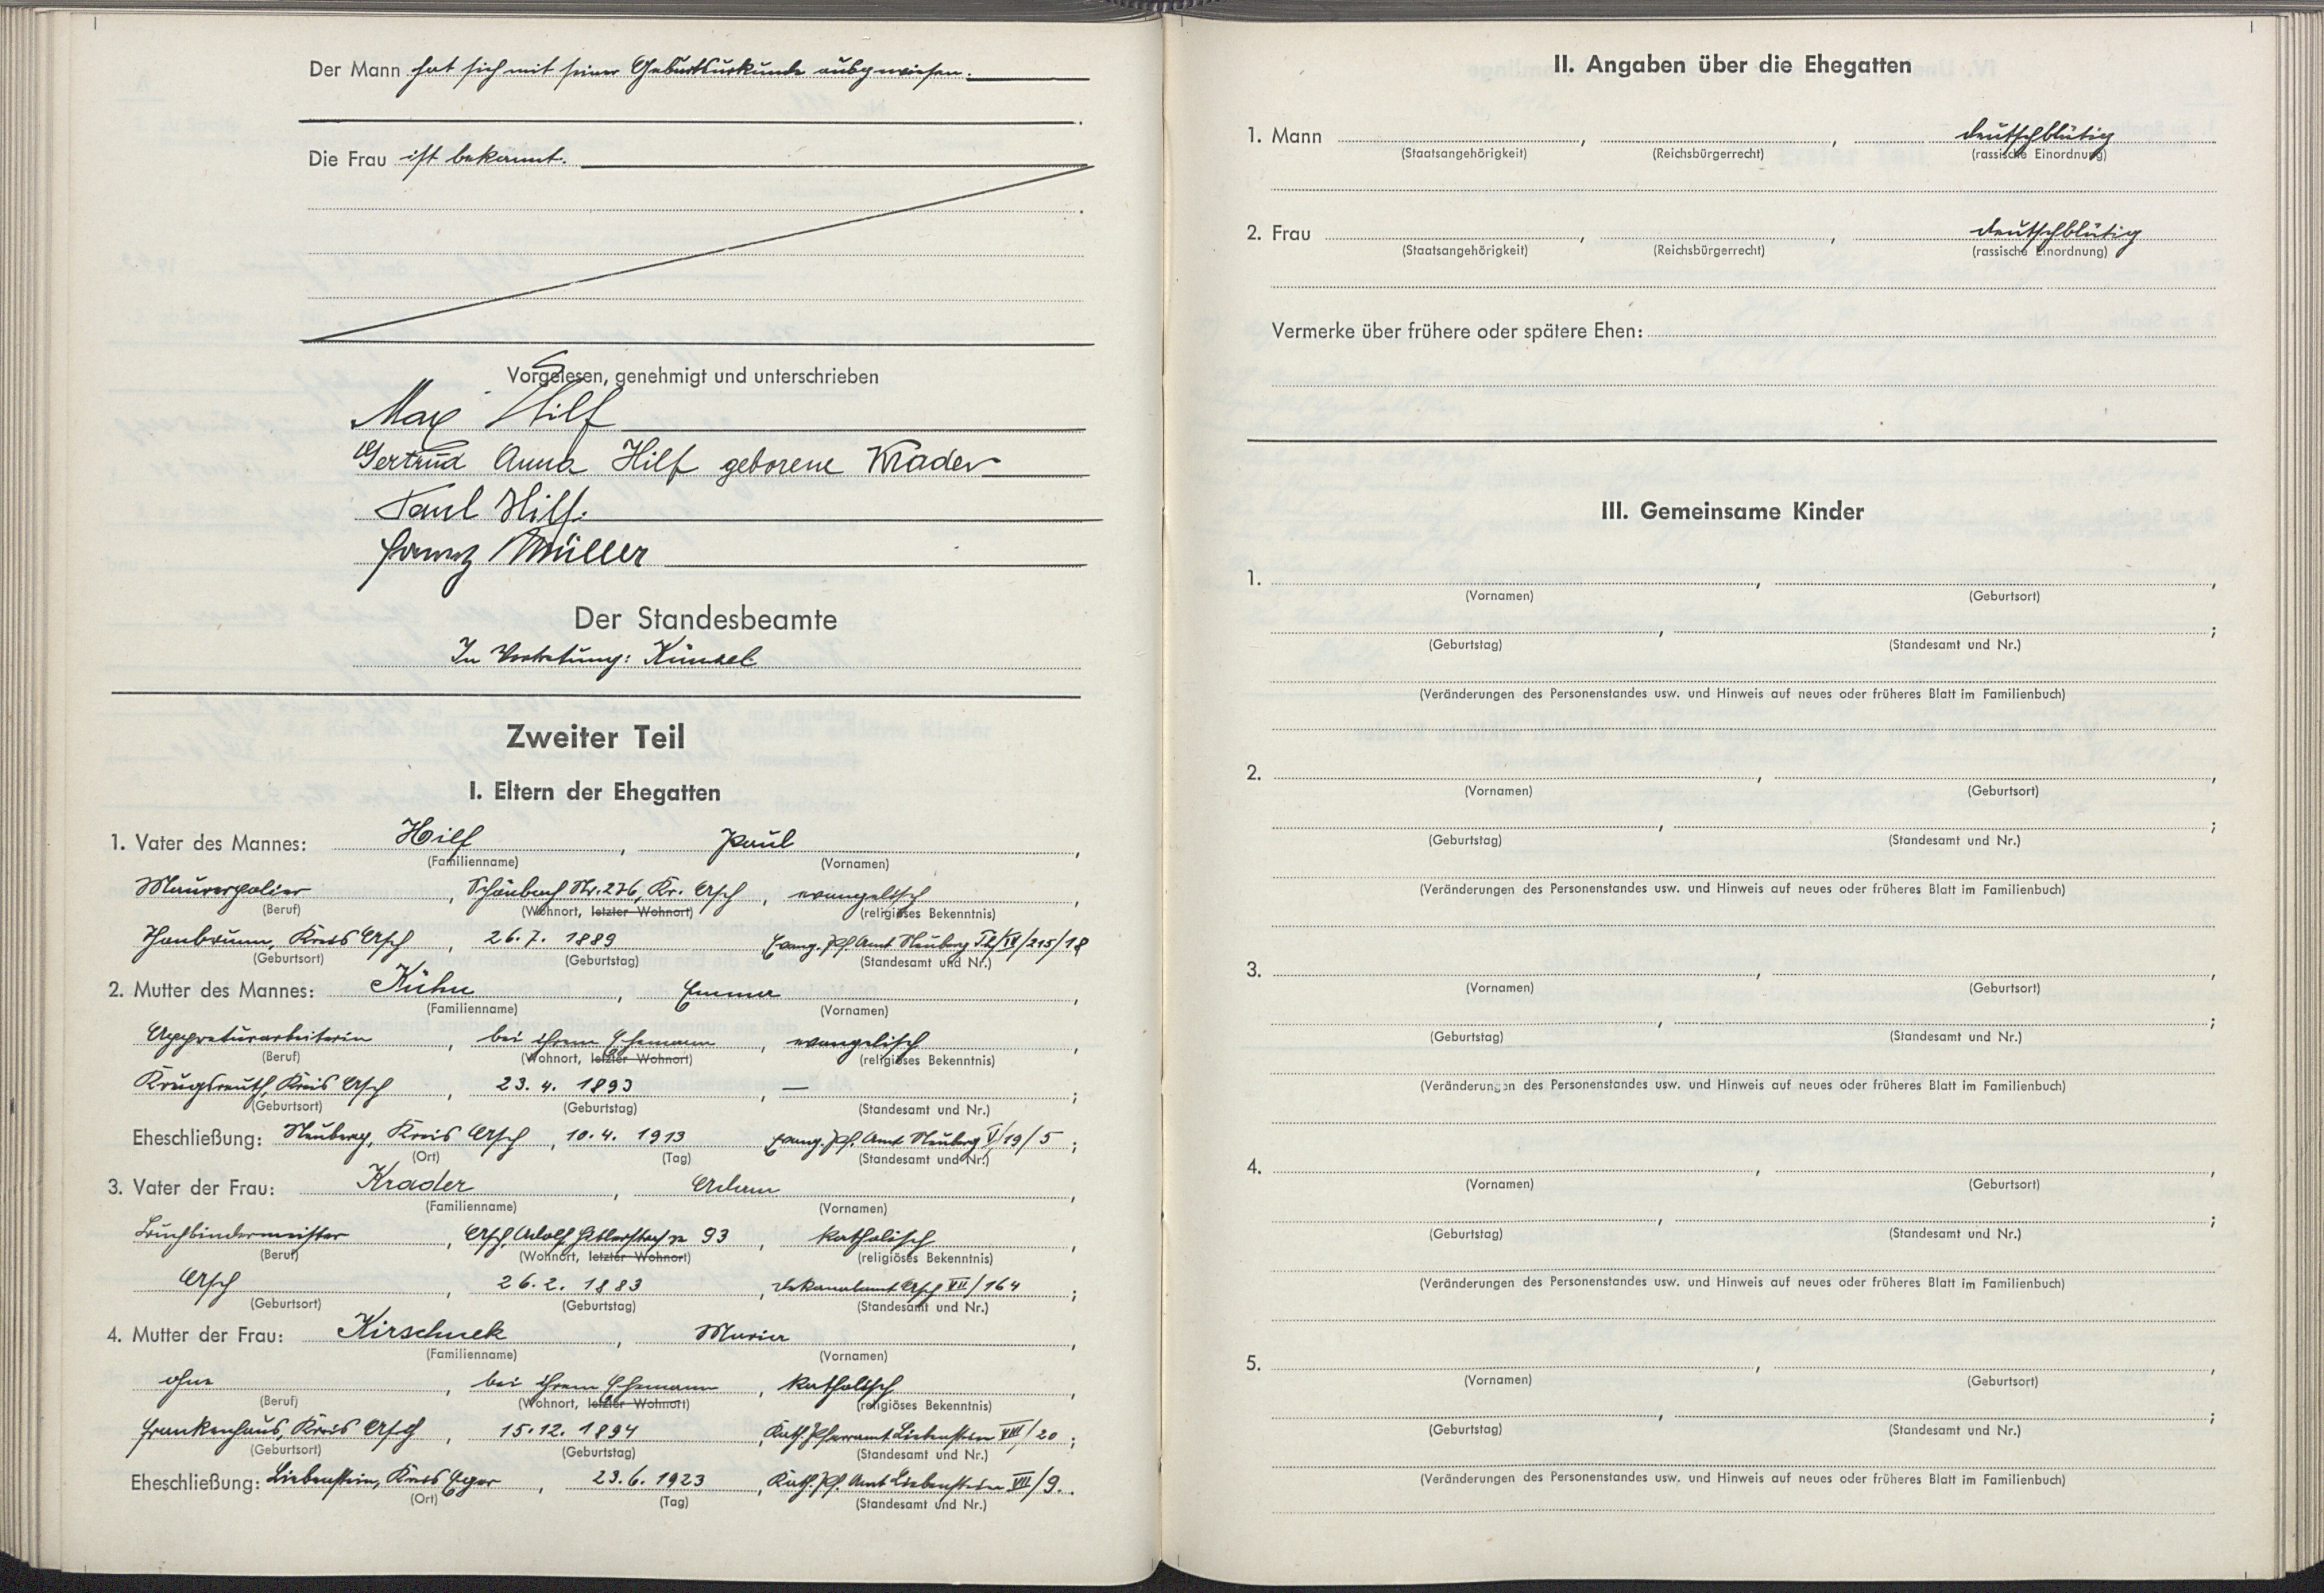 Der Mann hat sich mit seiner Geburtsurkunde ausgewiesen.
Die Frau ist bekannt.
Vorgelesen, genehmigt und unterschrieben
Max Hilf
Gertrud Anna Hilf geborene Krader
Paul Hilf.
Franz Müller
Der Standesbeamte
In Vertretung: Künzel
Zweiter Teil
I. Eltern der Ehegatten
1. Vater des Mannes: Hilf, Paul,
(Familienname) (Vornamen)
Maurerpolier, Schönbach Nr. 276, Kr. Asch, evangelisch,
(Beruf) (Wohnort, letzter Wohnort) (religiöses Bekenntnis)
Kreis Asch, 26.7. 1889 Evang. Pf. Amt Neuberg
(Geburtsort) (Geburtstag) (Standesamt und Nr.)
2. Mutter des Mannes: Kühn, Emma,
(Familienname) (Vornamen)
Appreturarbeiterin, bei ihrem Ehemann, evangelisch,
(Beruf) (Wohnort, letzter Wohnort) (religiöses Bekenntnis)
Krugsreuth, Kreis Asch, 23. 4. 1893, — ;
(Geburtsort) (Geburtstag) (Standesamt und Nr.)
Eheschließung: Neuberg, Kreis Asch, 10. 4. 1913 Evang. Pf. Amt Neuberg V/19/5;
(Ort) (Tag) (Standesamt und Nr.)
3. Vater der Frau: Krader, Adam,
(Familienname) (Vornamen)
Buchbindermeister, Asch, Adolf Hitlerstraße 93, katholisch,
(Beruf) (Wohnort, letzter Wohnort) (religiöses Bekenntnis)
Asch, 26. 2. 1883, Dekanalamt Asch VII/164;
(Geburtsort) (Geburtstag) (Standesamt und Nr.)
4. Mutter der Frau: Kirschnek, Maria,
(Familienname) (Vornamen)
ohne, bei ihrem Ehemann, katholisch,
(Beruf) (Wohnort, letzter Wohnort) (religiöses Bekenntnis)
Frankenhaus, Kreis Asch, 15. 12. 1894, Kath. Pfarramt Liebenstein VIII/20;
(Geburtsort) (Geburtstag) (Standesamt und Nr.)
Eheschließung: Liebenstein, Kreis Eger, 23. 6. 1923, Kath. Pf. Amt Liebenstein VII/9.
(Ort) (Tag) (Standesamt und Nr.)
II. Angaben über die Ehegatten
1. Mann , , deutschblütig
(Staatsangehörigkeit) (Reichsbürgerrecht) (rassische Einordnung)
2. Frau , , deutschblütig
(Staatsangehörigkeit) (Reichsbürgerrecht) (rassische Einordnung)
Vermerke über frühere oder spätere Ehen:
III. Gemeinsame Kinder
1. , ,
(Vornamen) (Geburtsort)
, ;
(Geburtstag) (Standesamt und Nr.)
(Veränderungen des Personenstandes usw. und Hinweis auf neues oder früheres Blatt im Familienbuch)
2. , ,
(Vornamen) (Geburtsort)
, ;
(Geburtstag) (Standesamt und Nr.)
(Veränderungen des Personenstandes usw. und Hinweis auf neues oder früheres Blatt im Familienbuch)
3. , ,
(Vornamen) (Geburtsort)
, ;
(Geburtstag) (Standesamt und Nr.)
(Veränderungen des Personenstandes usw. und Hinweis auf neues oder früheres Blatt im Familienbuch)
4. , ,
(Vornamen) (Geburtsort)
, ;
(Geburtstag) (Standesamt und Nr.)
(Veränderungen des Personenstandes usw. und Hinweis auf neues oder früheres Blatt im Familienbuch)
5. , ,
(Vornamen) (Geburtsort)
, ;
(Geburtstag) (Standesamt und Nr.)
(Veränderungen des Personenstandes usw. und Hinweis auf neues oder früheres Blatt im Familienbuch)